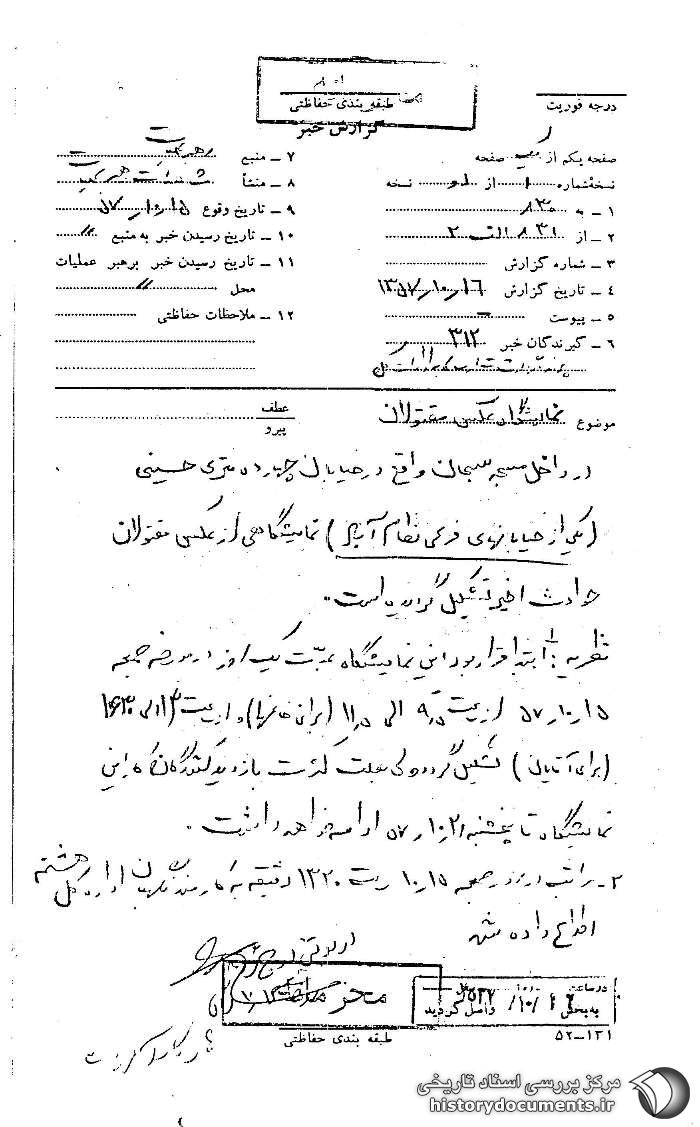 طبقه بندی حفاظتی
درجه فوریت
گزارش خبر
صفحه یکم از یک صفحه
نسخه‌شماره ۱ از نسخه
۱ – به ۸۳۰
۲ – از ۸۳۱ الف ۲
۳ – شماره گزارش
۴ – تاریخ گزارش ۱۳۵۷/۱۰/۱۶
۵ – پیوست –
۶ – گیرندگان خبر ۳۱۲
۷ – منبع رهبر
۸ – منشأ
۹ – تاریخ وقوع ۵۷/۱۰/۱۵
۱۰ – تاریخ رسیدن خبر به منبع //
۱۱ – تاریخ رسیدن خبر برهبر عملیات
محل //
۱۲ – ملاحظات حفاظتی
موضوع نمایشگاه عکس مقتولان
عطف
پیرو
در داخل مسجد سبحان واقع در خیابان چهارده متری حسینی
(یکی از خیابانهای فرعی نظام آباد) نمایشگاهی از عکس مقتولان
حوادث اخیر تشکیل گردیده است.
نظریه: ۱– ابتدا قرار بود این نمایشگاه بمدت یک روز در مورخه جمعه
۵۷/۱۰/۱۵ از ساعت ۹٫۵ الی ۱۱٫۵ (برای خانمها) و از ساعت ۱۳ الی ۱۶۳۰
(برای آقایان) تشکیل گردد ولی بعلت کثرت بازدیدکنندگان این
نمایشگاه تا پنجشنبه ۵۷/۱۰/۲۱ ادامه خواهد داشت.
۲– مراتب در روز جمعه ۱۰/۱۵ ساعت ۱۳۲۰ دقیقه به کارمند نگهبان اداره کل هشتم
اطلاع داده شد
محرمانه
طبقه بندی حفاظتی
در ساعت
به بخش
واصل گردید
۵۲–۱۳۱
مرکز بررسی اسناد تاریخی
historydocuments.ir